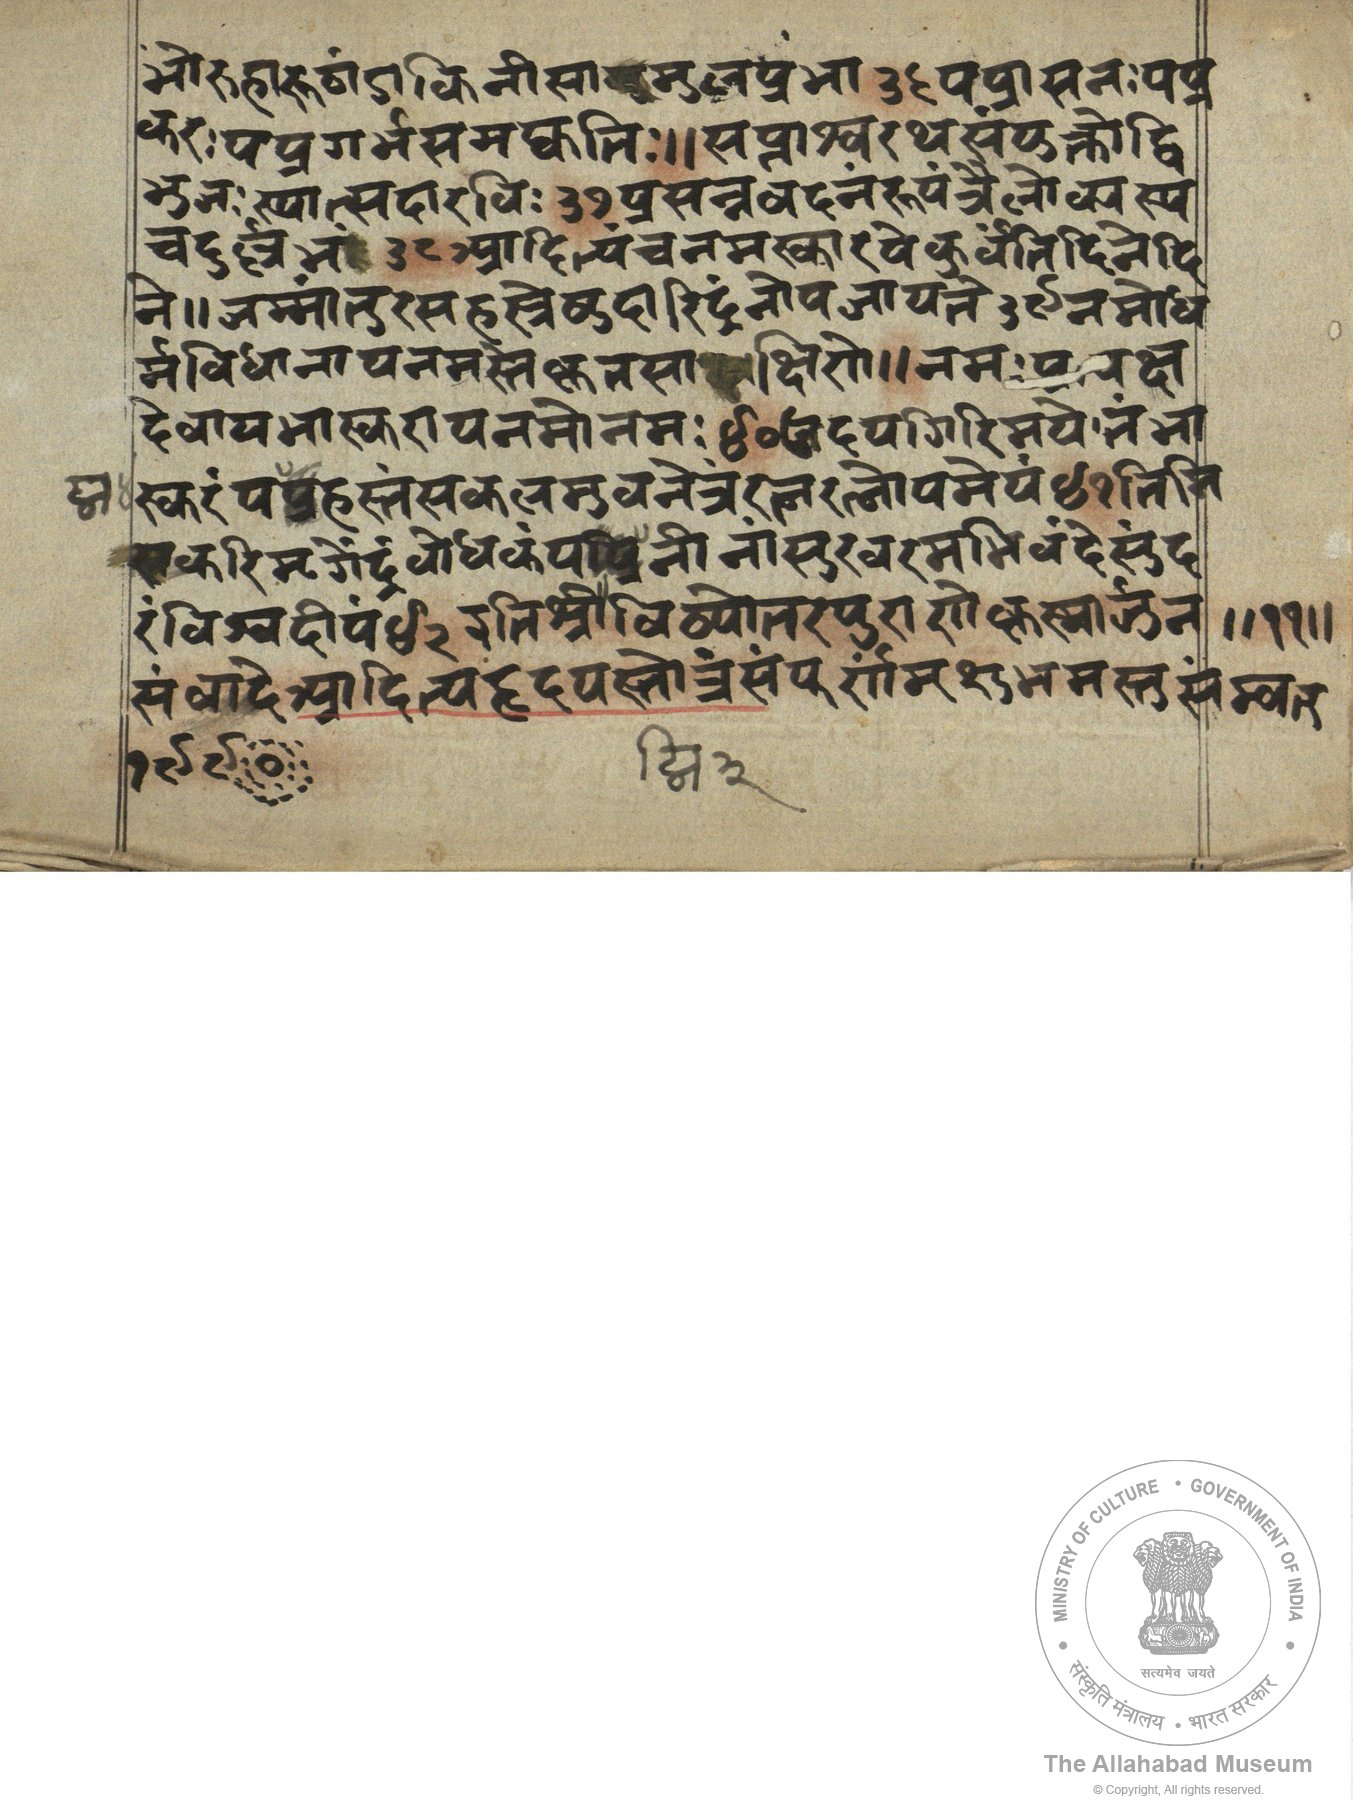 भोरुहारूढांडाकिनीसा मुजप्रभा ३६ पद्मासनः पद्म
करः पद्मगर्भसमद्युतिः ॥ सप्ताश्वरथसंयुक्तोद्वि
भुजः स्यात्सदारविः ३७ प्रसन्नवदनंरूपंत्रैलोक्यस्य
चदुर्ल्लभां ३८ आदित्यंचनमस्कारयेकुर्वंतिदिनेदि
ने ॥ जन्मांतुरसहस्रेषुदारिद्रंनोपजायते ३९ नमोध
र्मविधानायनमस्तेकृतसा क्षिणे ॥ नमः प्रत्यक्ष
देवायभास्करायनमोनमः ४० उदयगिरिमुपेतंभा
स्करंपद्महस्तंसकलभुवनेत्रंरत्नरत्नोपमेयं ४१ तिमि
रकरिमृगेंद्रंवोधकंपद्मिनीनांसुरवरमभिवंदेसुंद
रंविश्वदीपं ४२ इतिश्रीविष्योतरपुराणेकृस्नार्ज्जुन ॥११॥
संवादेआदित्यहृदयस्तोत्रंसंपूर्णम् शुभमस्तु संम्वत्
१९९०
MINISTRY OF CULTURE • GOVERNMENT OF INDIA
सत्यमेव जयते
संस्कृति मंत्रालय • भारत सरकार
The Allahabad Museum
© Copyright, All rights reserved.